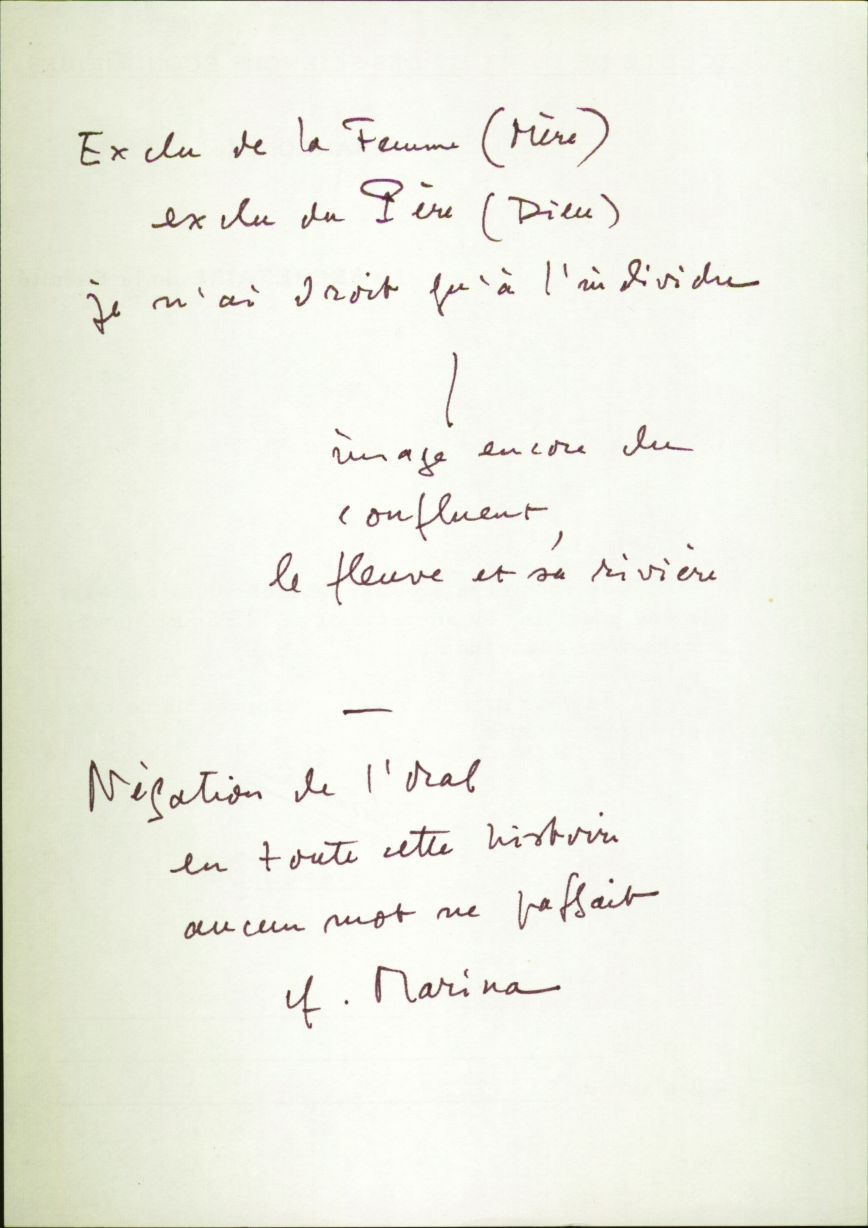 Exclu de la Femme (Mère)
exclu du Père (Dieu)
je n'ai droit qu'à l'individu
image encore du
confluent,
le fleuve et sa rivière
—
Négation de l'oral
en toute cette histoire
aucun mot ne passait
cf. Marina